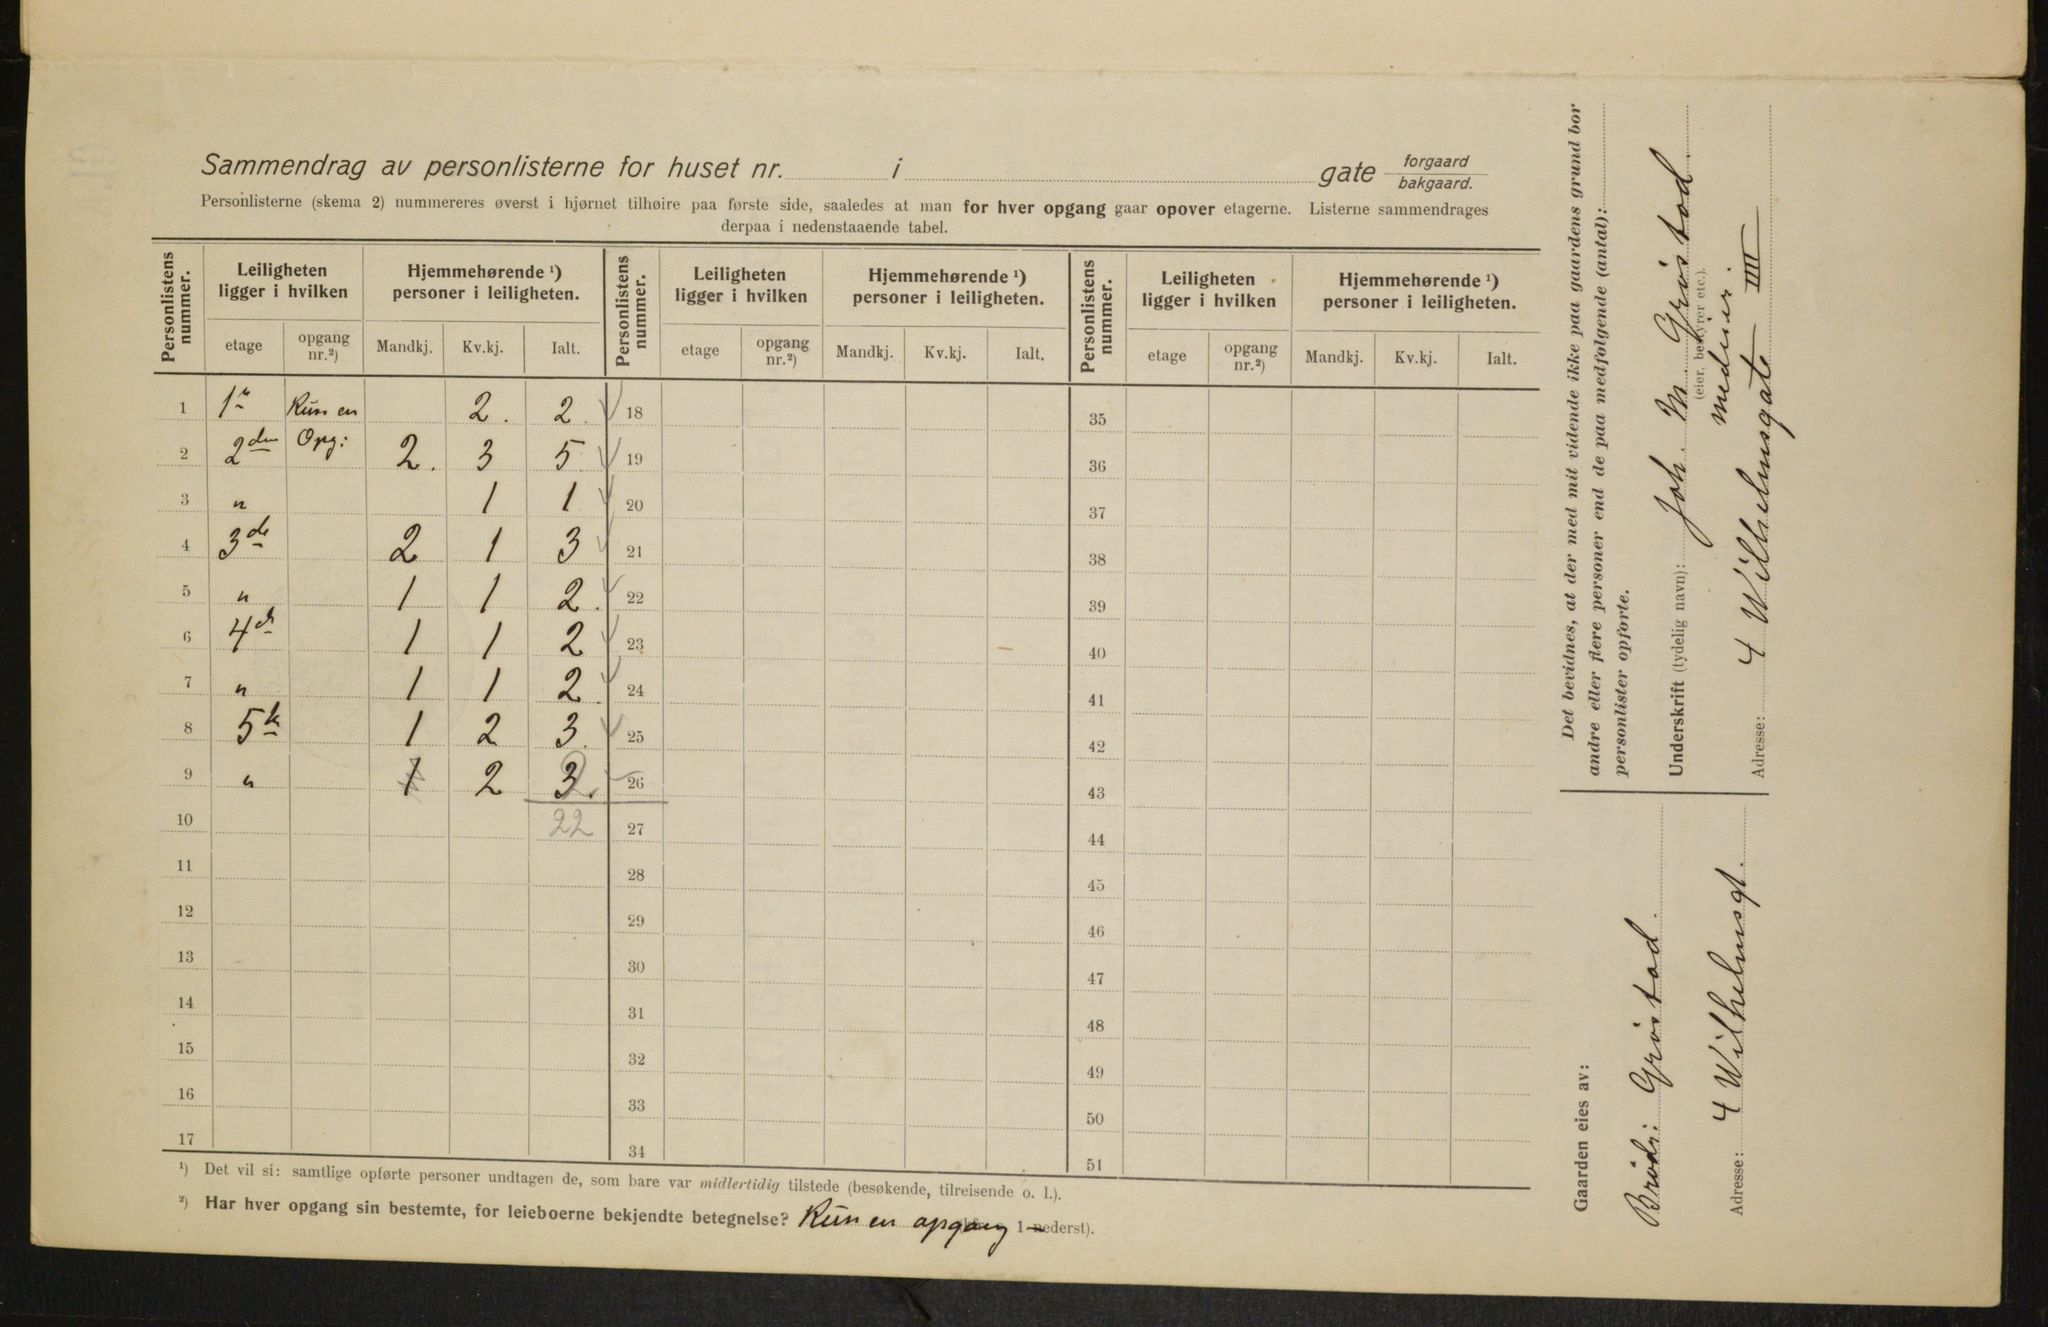 Sammendrag av personlisterne for huset nr. i gate forgaard bakgaard.
Personlisterne (skema 2) nummereres øverst i hjørnet tilhøire paa første side, saaledes at man for hver opgang gaar opover etagerne. Listerne sammendrages
derpaa i nedenstaaende tabel.
Personlistens nummer. Leiligheten ligger i hvilken Hjemmehørende ¹) personer i leiligheten. Personlistens nummer. Leiligheten ligger i hvilken Hjemmehørende ¹) personer i leiligheten. Personlistens nummer. Leiligheten ligger i hvilken Hjemmehørende ¹) personer i leiligheten.
etage opgang nr.²) Mandkj. Kv.kj. Ialt. etage opgang nr.²) Mandkj. Kv.kj. Ialt. etage opgang nr.²) Mandkj. Kv.kj. Ialt.
1 1ste Kun en 2. 2. 18 35
2 2den Opg: 2. 3 5. 19 36
3 " 1 1 20 37
4 3de 2 1 3 21 38
5 " 1 1 2. 22 39
6 4de 1 1 2 23 40
7 " 1 1 2. 24 41
8 5te 1 2 3. 25 42
9 " 1 2 3. 26 43
10 22 27 44
11 28 45
12 29 46
13 30 47
14 31 48
15 32 49
16 33 50
17 34 51
¹) Det vil si: samtlige opførte personer undtagen de, som bare var midlertidig tilstede (besøkende, tilreisende o. l.).
²) Har hver opgang sin bestemte, for leieboerne bekjendte betegnelse? Kun en opgang 1 nederst).
Det bevidnes, at der med mit vidende ikke paa gaardens grund bor
andre eller flere personer end de paa medfølgende (antal):
personlister opførte.
Underskrift (tydelig navn): Joh. M. Gröstod.
(eier, bestyrer etc.).
medeier
Adresse: 4 Wilhelmsgate IIII
Gaarden eies av:
Brödr: Gröstad.
Adresse: 4 Wilhelmsgt.